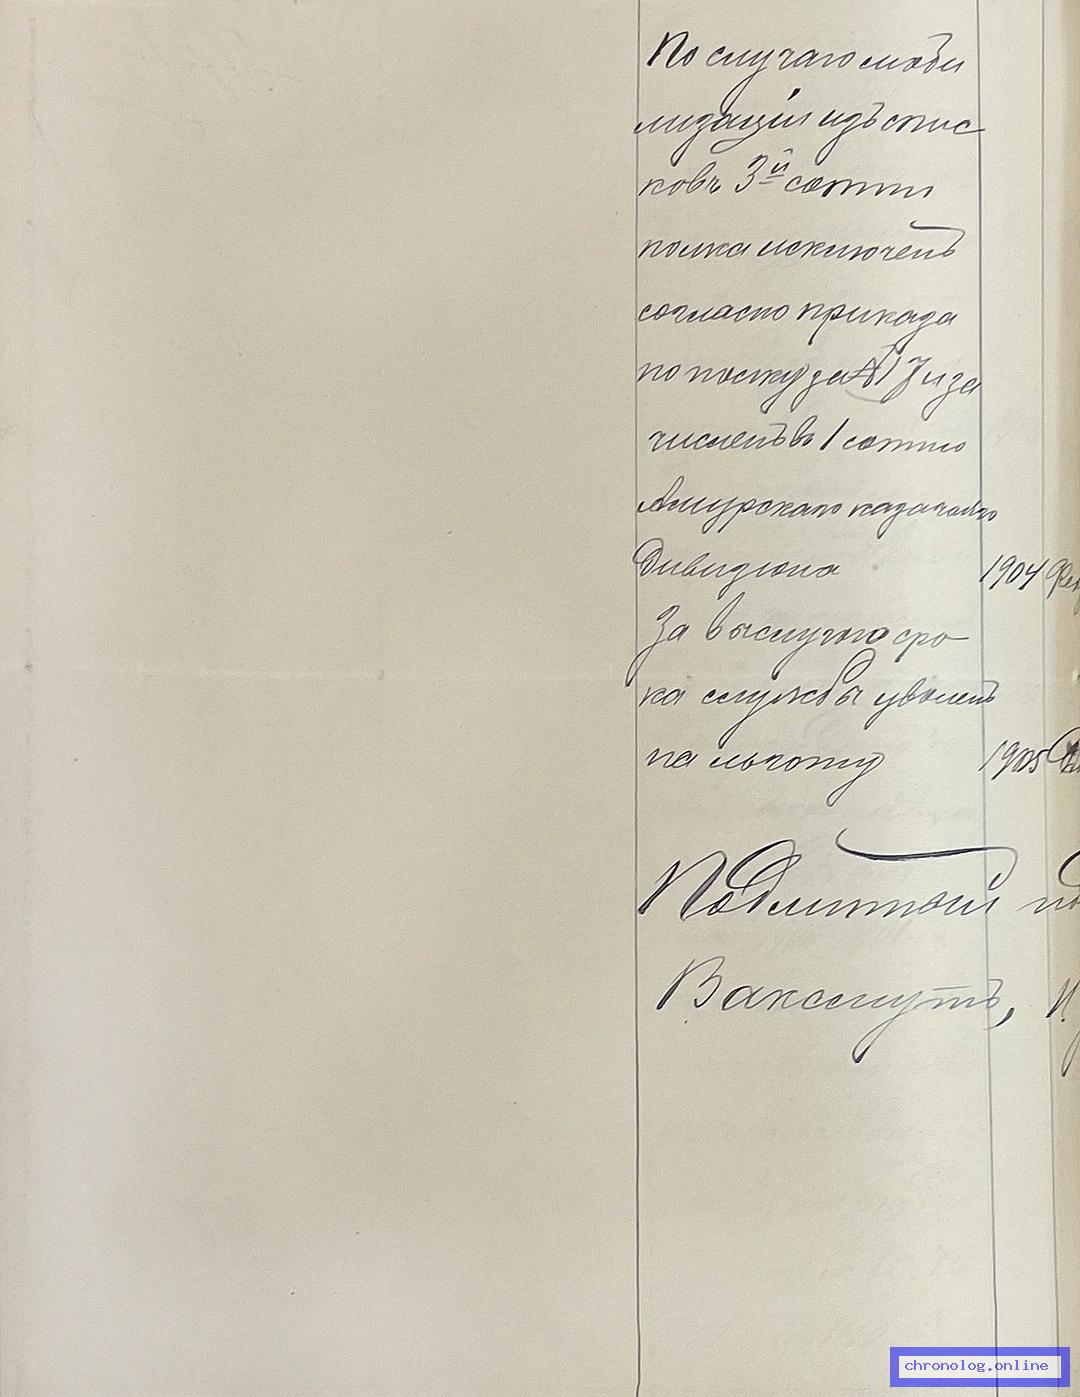 По случаю моби
лизаціи изъ спис
ковъ 3й сотни
полка исключенъ
согласно приказа
по полку за № 17 и за
численъ въ 1 сотню
Амурскаго казачьяго
Дивизіона 1904 Фев
За выслугою сро
ка службы уволенъ
на льготу 1905
Подлинный по
Ваксмутъ, И.
chronolog.online